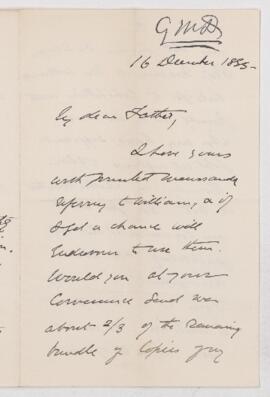 GMD
16 December 1885-
My dear Father,
I have yours
with printed
referring to William, & if
I get a chance will
endeavour to use them.
Would you at your
convenience send me
about 2/3 of the remaining
bundle of copies of my